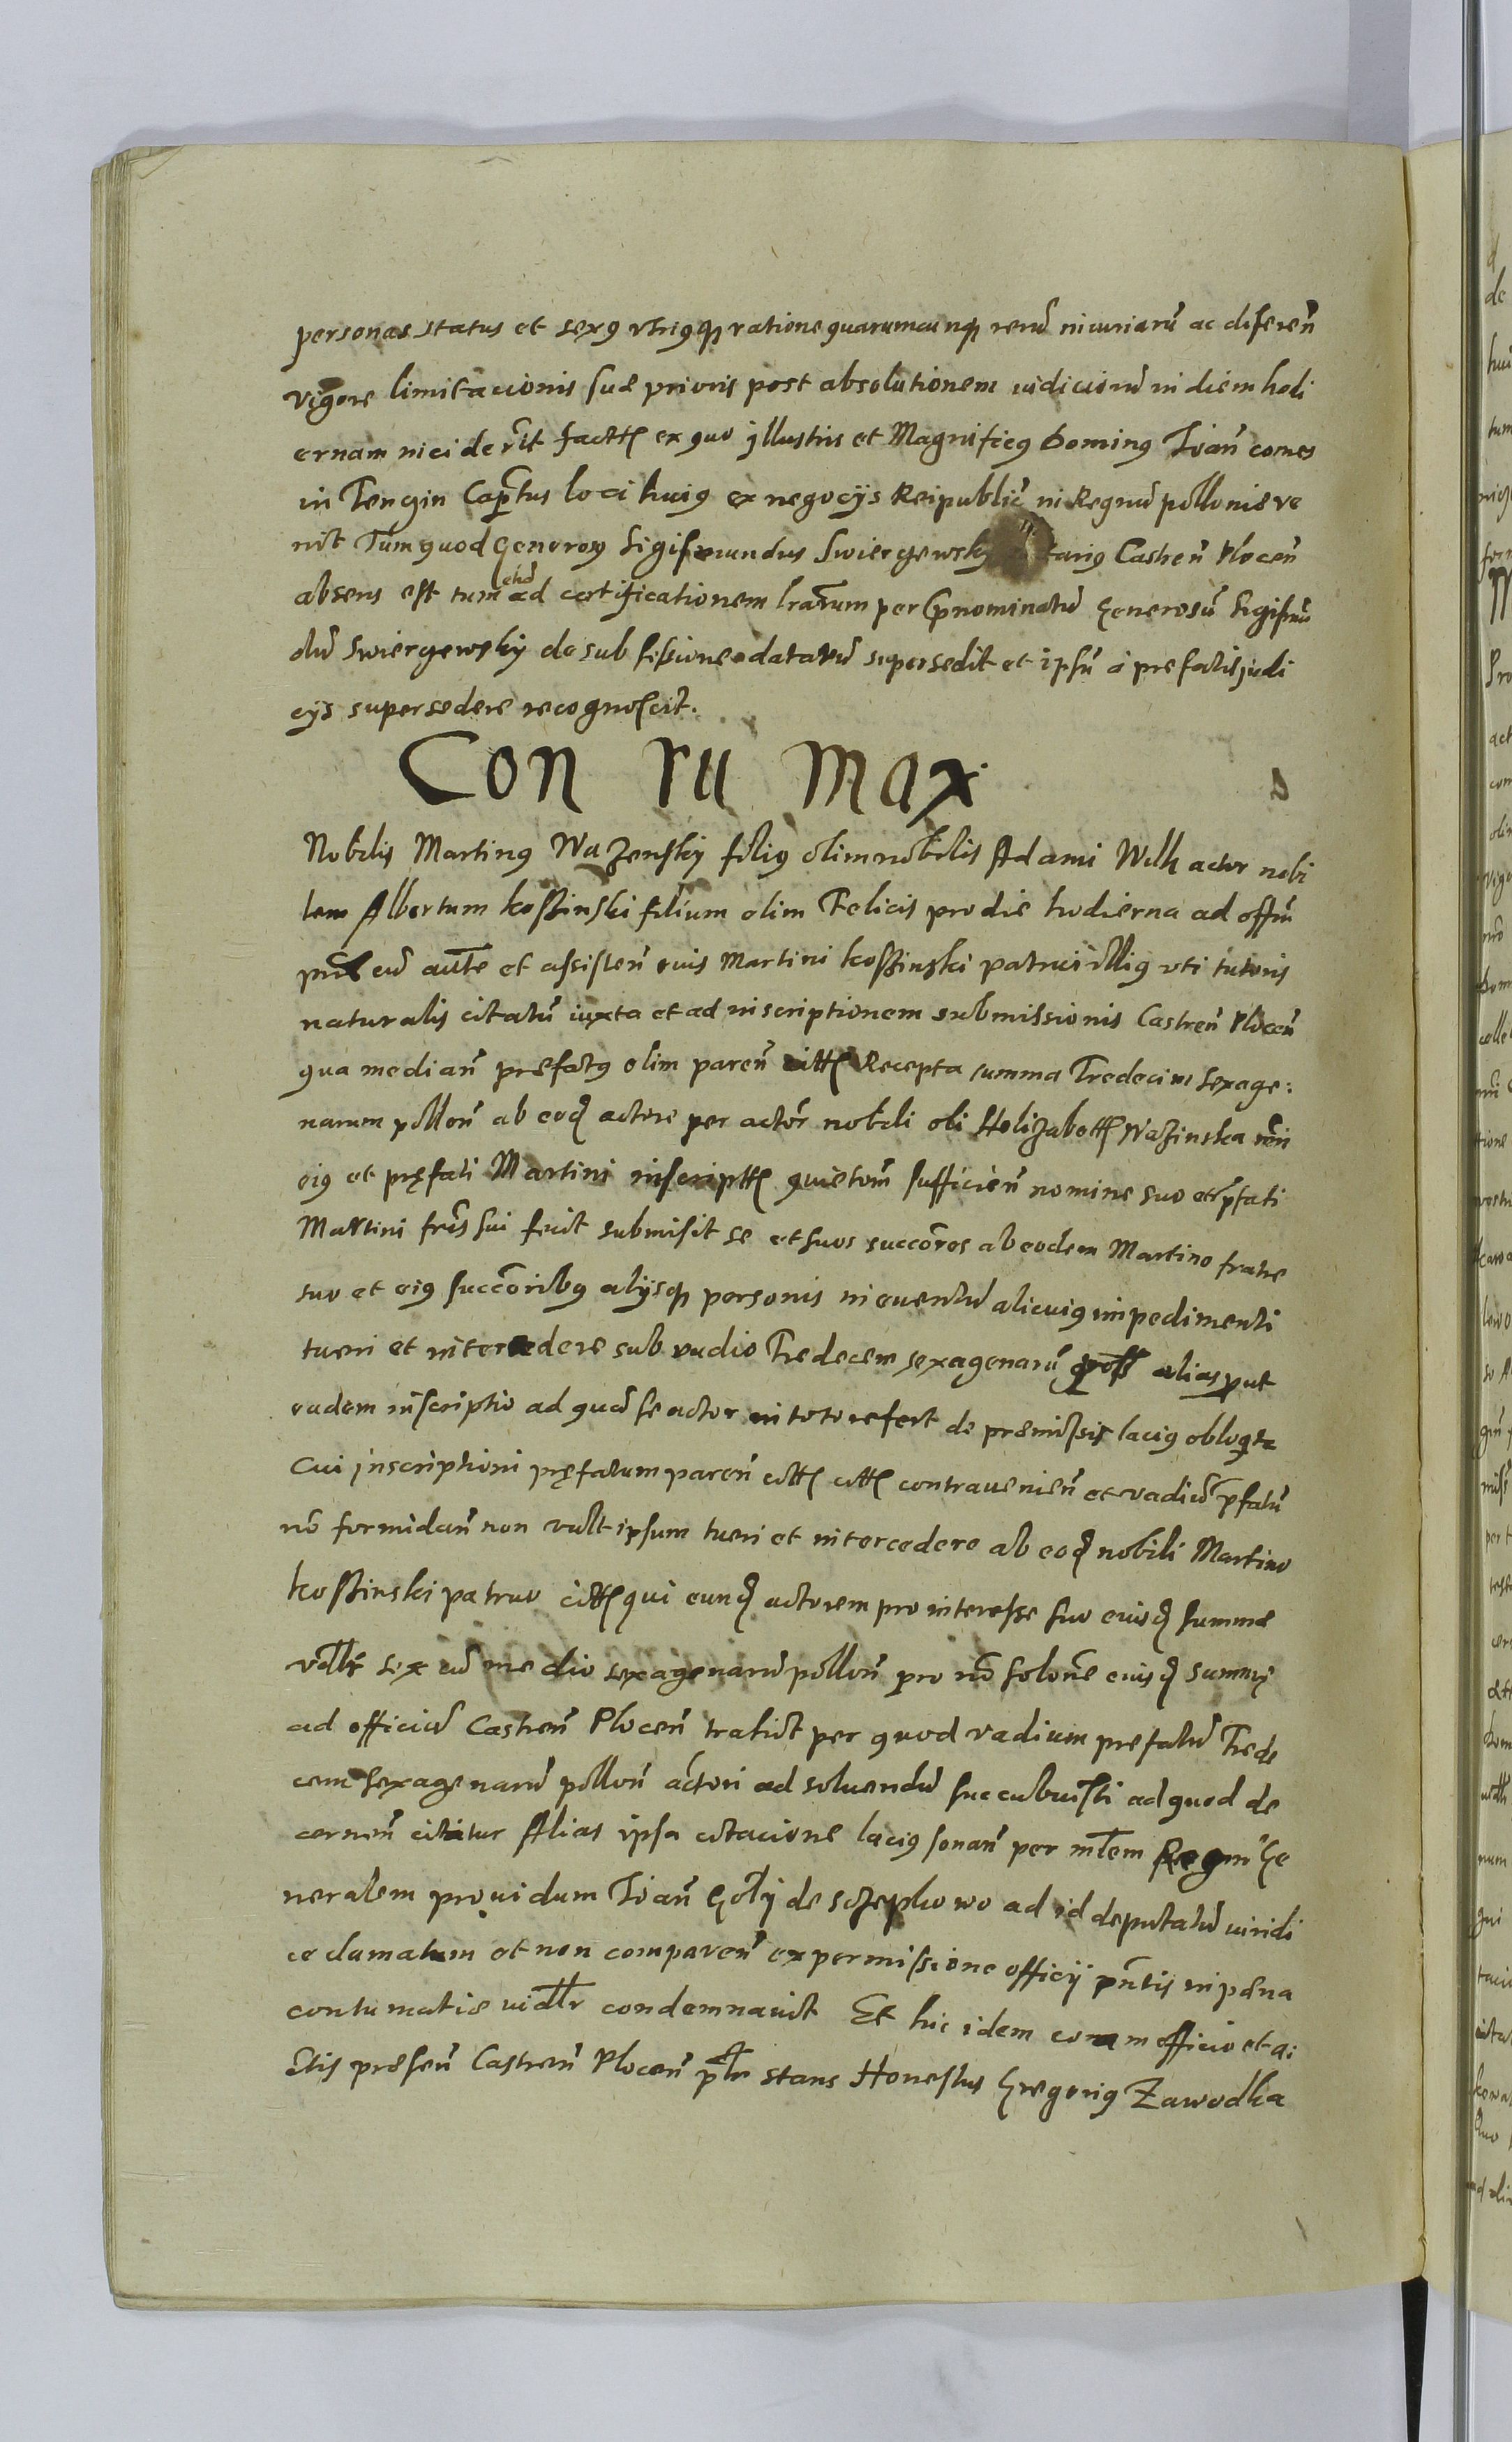 personas status et sexꝯ vtriꝯqꝫ ratione quarumcunqꝫ rerū iniuriarū ac diferen̄
vigore limitacionis suæ prioris post absolutionem iudiciorū in diem hodi
ernam inciderit factt ex quo yllustris et Magnificꝯ Dominꝯ Joan̄ comes
in Tenczin Capt̄us loci huiꝯ ex negocijs Reipublic̄ in Regnū pollonie ve
nit Tum quod Generosꝯ Sigismundus Swiergewsky Castren̄ Plocen̄
absens est tum etiā ad certificationem lr̄arum per p̄nominatū Generosū Sigismū
dū Swiergewsky de subsessione datarū supersedit et ipsū à prefatis judi
cijs supersedere recognoscit.
Con tu max
Nobilis Martinꝯ Wazenskÿ filiꝯ olim nobilis Adami Wilk actor nobi
lem Albertum kossinski filium olim Felicis pro die hodierna ad offm̄
pn̄s cū aut̄te et assisten̄ euis Martini kossinski patrui illiꝯ vti tutoris
naturalis citatū iuxta et ad inscriptionem submissionis Castren̄ Plocen̄
qua median̄ præfatꝯ olim paren̄ citti Recepta summa Tredecim sexage:
narum pollon̄ ab eod actore per actor̄ nobili oli Helizabett Wazinska
eiꝯ et pręfati Martini inscriptt quietom̄ sufficien̄ nomine suo et p̄fati
Martini fr̄is sui fecit submisit se et suos succor̄es ab eodem Martino fratre
suo et eiꝯ succor̄ibꝯ alijsqꝫ personis in euentū alicuiꝯ impedimenti
tueri et intercedere sub vadio Tredecem sexagenarū gross alias put
eadem inscriptio ad quā se actor in toto refert de præmissis laciꝯ obloqtr
Cui inscriptioni pręfatum paren̄ citti citti contrauenien̄ et vadiū p̄fatū
nō formidan̄ non vult ipsum tueri et intercedere ab eod nobili Martino
kossinski patruo citti qui eund actorem pro interesse suo eiusd summæ
vdllt sex cū medio sexagenarū pollon̄ pro nō solone eiusd summę
ad officiū Castren̄ Plocen̄ trahit per quod vadium prefatū Trede
cem sexagenarū pollon̄ actori ad soluendū succubuisti ad quod de
cernen̄ citatur Alias ipsa citacione laciꝯ sonan̄ per mt̄em Regni Ge
neralem prouidum Joan̄ Goły de Sczepkowo ad id deputatū iuridi
ce clamatum et non comparen̄ ex permissione officij pn̄tis in pæna
contumatiæ vidllt condemnauit Et hic idem coram officio et a:
ctis præsen̄ Castren̄ Plocen̄ pltr stans Honestus Gregoriꝯ Zawodka